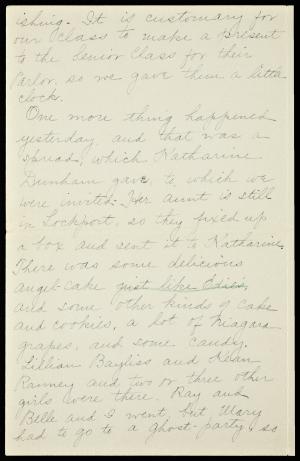 ishing. It is customary for
our class to make a present
to the Senior Class for their
Parlor, so we gave them a little
clock.
One more thing happened
yesterday and that was a
spread, which Katharine
Dunham gave, to which we
were invited. Her aunt is still
in Lockport, so they fixed up
a box and sent it to Katharine.
There was some delicious
angel-cake just like Edie's,
and some other kinds of cake
and cookies, a lot of Niagara
grapes, and some candy.
Lillian Bayliss and
Ranney and two or three other
girls were there. Ray and
Belle and I went, but Mary
had to go to a ghost-party, so